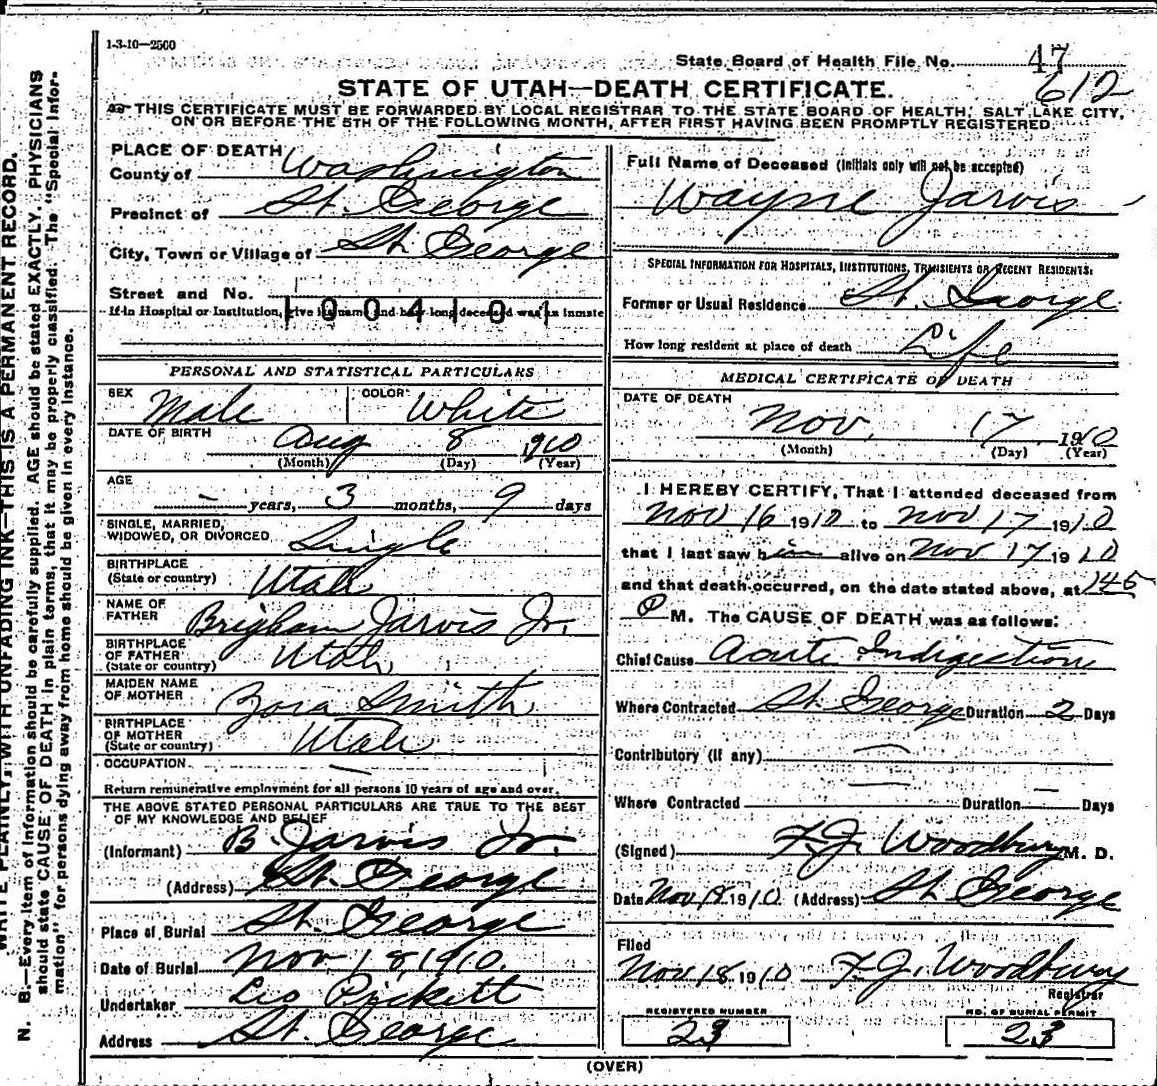 1-3-10—2500
State Board of Health File No. 47
612
STATE OF UTAH—DEATH CERTIFICATE.
THIS CERTIFICATE MUST BE FORWARDED BY LOCAL REGISTRAR TO THE STATE BOARD OF HEALTH, SALT LAKE CITY,
ON OR BEFORE THE 5TH OF THE FOLLOWING MONTH, AFTER FIRST HAVING BEEN PROMPTLY REGISTERED
PLACE OF DEATH
County of Washington
Precinct of St. George
City, Town or Village of St George
Street and No.
1004101
If in Hospital or Institution, give its name and how long deceased was an inmate
PERSONAL AND STATISTICAL PARTICULARS
SEX Male COLOR White
DATE OF BIRTH Aug 8 1910
(Month) (Day) (Year)
AGE
— years, 3 months, 9 days
SINGLE, MARRIED,
WIDOWED, OR DIVORCED Single
BIRTHPLACE
(State or country) Utah
NAME OF
FATHER Brigham Jarvis Jr.
BIRTHPLACE
OF FATHER
(State or country) Utah
MAIDEN NAME
OF MOTHER Zora Smith
BIRTHPLACE
OF MOTHER
(State or country) Utah
OCCUPATION —
Return remunerative employment for all persons 10 years of age and over.
THE ABOVE STATED PERSONAL PARTICULARS ARE TRUE TO THE BEST
OF MY KNOWLEDGE AND BELIEF
(Informant) B. Jarvis Jr.
(Address) St. George
Place of Burial St. George
Date of Burial Nov. 18, 1910.
Undertaker Pickett
Address St. George
Full Name of Deceased (Initials only will not be accepted)
Wayne Jarvis
SPECIAL INFORMATION FOR HOSPITALS, INSTITUTIONS, TRANSIENTS OR RECENT RESIDENTS:
Former or Usual Residence St. George
How long resident at place of death Life
MEDICAL CERTIFICATE OF DEATH
DATE OF DEATH
Nov. 17 1910
(Month) (Day) (Year)
I HEREBY CERTIFY, That I attended deceased from
Nov 16 1910 to Nov 17 1910
that I last saw him alive on Nov 17 1910
and that death occurred, on the date stated above, at 145
P M. The CAUSE OF DEATH was as follows:
Chief Cause Acute Indigestion
Where Contracted St. George Duration 2 Days
Contributory (if any) —
Where Contracted — Duration — Days
(Signed) F. J. Woodbury M. D.
Date Nov 18 1910 (Address) St George
Filed
Nov 18 1910 F. J. Woodbury
Registrar
REGISTERED NUMBER
23
NO. OF BURIAL PERMIT
23
(OVER)
WRITE PLAINLY, WITH UNFADING INK—THIS IS A PERMANENT RECORD.
N. B.—Every item of information should be carefully supplied. AGE should be stated EXACTLY. PHYSICIANS
should state CAUSE OF DEATH in plain terms, that it may be properly classified. The "Special Infor-
mation" for persons dying away from home should be given in every instance.